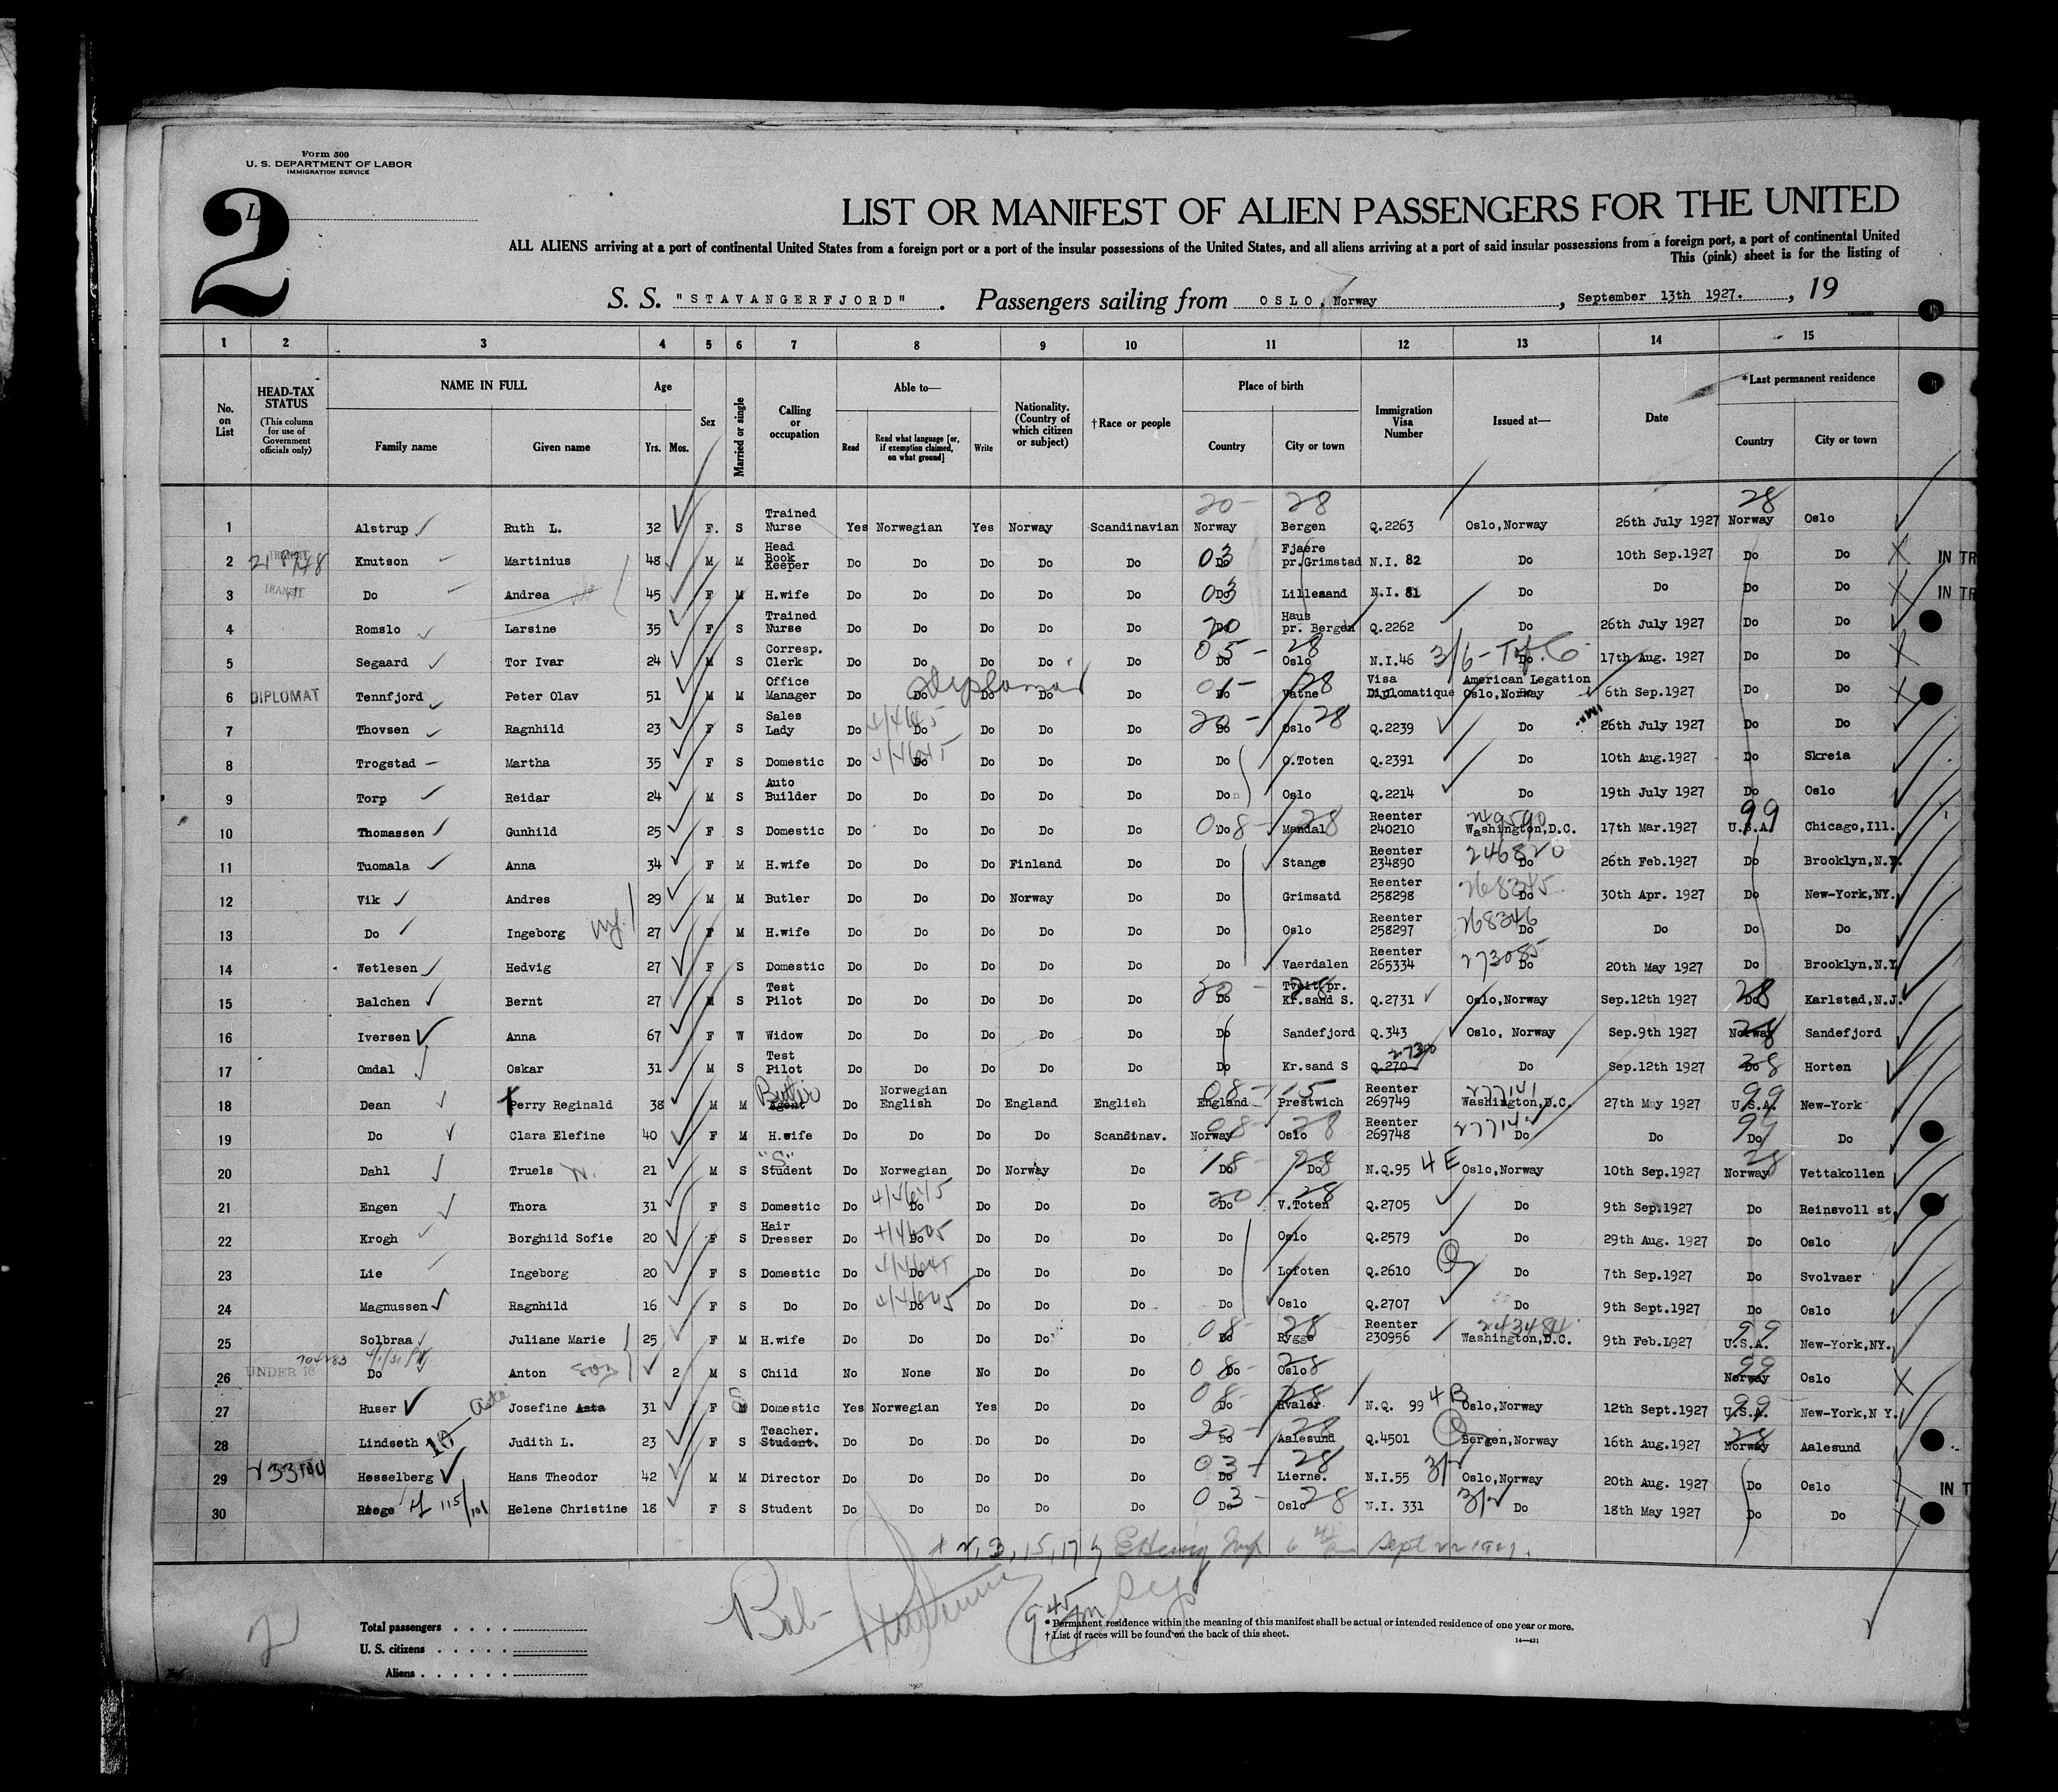 Form 500
U. S. DEPARTMENT OF LABOR
IMMIGRATION SERVICE
2
LIST OR MANIFEST OF ALIEN PASSENGERS FOR THE UNITED
ALL ALIENS arriving at a port of continental United States from a foreign port or a port of the insular possessions of the United States, and all aliens arriving at a port of said insular possessions from a foreign port, a port of continental United
This (pink) sheet is for the listing of
S. S. "STAVANGERFJORD". Passengers sailing from OSLO, Norway, September 13th 1927., 19
1 2 3 4 5 6 7 8 9 10 11 12 13 14 15
No. on List HEAD-TAX STATUS (This column for use of Government officials only) NAME IN FULL Family name Given name Age Yrs. Mos. Sex Married or single Calling or occupation Able to— Read Read what language [or, if exemption claimed, on what ground] Write Nationality. (Country of which citizen or subject) †Race or people Place of birth Country City or town Immigration Visa Number Issued at— Date *Last permanent residence Country City or town
1 Alstrup Ruth L. 32 F. S Trained Nurse Yes Norwegian Yes Norway Scandinavian Norway Bergen Q.2263 Oslo,Norway 26th July 1927 Norway Oslo
2 TRANSIT Knutson Martinius 48 M M Head Book Keeper Do Do Do Do Do Do Fjaere pr.Grimstad N.I. 82 Do 10th Sep.1927 Do Do IN TR
3 TRANSIT Do Andrea 45 F M H.wife Do Do Do Do Do Do Lillesand N.I. 81 Do Do Do Do IN TR
4 Romslo Larsine 35 F S Trained Nurse Do Do Do Do Do Do Haus pr. Bergen Q.2262 Do 26th July 1927 Do Do
5 Segaard Tor Ivar 24 M S Corresp. Clerk Do Do Do Do Do Do Oslo N.I.46 Do 17th Aug. 1927 Do Do
6 DIPLOMAT Tennfjord Peter Olav 51 M M Office Manager Do Do Do Do Do Do Vatne Visa Diplomatique American Legation Oslo,Norway 6th Sep.1927 Do Do
7 Thovsen Ragnhild 23 F S Sales Lady Do Do Do Do Do Do Oslo Q.2239 Do 26th July 1927 Do Do
8 Trogstad Martha 35 F S Domestic Do Do Do Do Do Do O.Toten Q.2391 Do 10th Aug.1927 Do Skreia
9 Torp Reidar 24 M S Auto Builder Do Do Do Do Do Do Oslo Q.2214 Do 19th July 1927 Do Oslo
10 Thomassen Gunhild 25 F S Domestic Do Do Do Do Do Do Mandal Reenter 240210 Washington,D.C. 17th Mar.1927 U.S.A. Chicago,Ill.
11 Tuomala Anna 34 F M H.wife Do Do Do Finland Do Do Stange Reenter 234890 Do 26th Feb.1927 Do Brooklyn,N.Y.
12 Vik Andres 29 M M Butler Do Do Do Norway Do Do Grimsatd Reenter 258298 Do 30th Apr. 1927 Do New-York,NY.
13 Do Ingeborg 27 F M H.wife Do Do Do Do Do Do Oslo Reenter 258297 Do Do Do Do
14 Wetlesen Hedvig 27 F S Domestic Do Do Do Do Do Do Vaerdalen Reenter 265334 Do 20th May 1927 Do Brooklyn,N.Y
15 Balchen Bernt 27 M S Test Pilot Do Do Do Do Do Do Tveit pr. Kr.sand S. Q.2731 Oslo,Norway Sep.12th 1927 Do Karlstad,N.J.
16 Iversen Anna 67 F W Widow Do Do Do Do Do Do Sandefjord Q.343 Oslo, Norway Sep.9th 1927 Norway Sandefjord
17 Omdal Oskar 31 M S Test Pilot Do Do Do Do Do Do Kr.sand S Q.270 2730 Do Sep.12th 1927 Do Horten
18 Dean Perry Reginald 38 M M Agent Butler Do Norwegian English Do England English England Prestwich Reenter 269749 Washington,D.C. 27th May 1927 U.S.A. New-York
19 Do Clara Elefine 40 F M H.wife Do Do Do Do Scandinav. Norway Oslo Reenter 269748 Do Do Do Do
20 Dahl Truels 21 M S "S" Student Do Norwegian Do Norway Do Do Do N.Q.95 4E Oslo,Norway 10th Sep.1927 Norway Vettakollen
21 Engen Thora 31 F S Domestic Do Do Do Do Do Do V.Toten Q.2705 Do 9th Sep.1927 Do Reinsvoll st.
22 Krogh Borghild Sofie 20 F S Hair Dresser Do Do Do Do Do Do Oslo Q.2579 Do 29th Aug. 1927 Do Oslo
23 Lie Ingeborg 20 F S Domestic Do Do Do Do Do Do Lofoten Q.2610 Do 7th Sep.1927 Do Svolvaer
24 Magnussen Ragnhild 16 F S Do Do Do Do Do Do Do Oslo Q.2707 Do 9th Sept.1927 Do Oslo
25 Solbraa Juliane Marie 25 F M H.wife Do Do Do Do Do Do Rygge Reenter 230956 Washington,D.C. 9th Feb.1927 U.S.A. New-York,NY.
26 UNDER 16 Do Anton 2 M S Child No None No Do Do Do Oslo Norway Oslo
27 Huser Josefine Asta 31 F M Domestic Yes Norwegian Yes Do Do Do Hvaler N.Q. 99 4B Oslo,Norway 12th Sept.1927 U.S.A. New-York,N Y.
28 Lindseth Judith L. 23 F S Teacher. Student. Do Do Do Do Do Do Aalesund Q.4501 Bergen,Norway 16th Aug.1927 Norway Aalesund
29 Hesselberg Hans Theodor 42 M M Director Do Do Do Do Do Do Lierne. N.I.55 Oslo,Norway 20th Aug. 1927 Do Oslo IN T
30 Riege Helene Christine 18 F S Student Do Do Do Do Do Do Oslo N.I. 331 Do 18th May 1927 Do Do
Total passengers
U. S. citizens
Aliens
* Permanent residence within the meaning of this manifest shall be actual or intended residence of one year or more.
† List of races will be found on the back of this sheet.